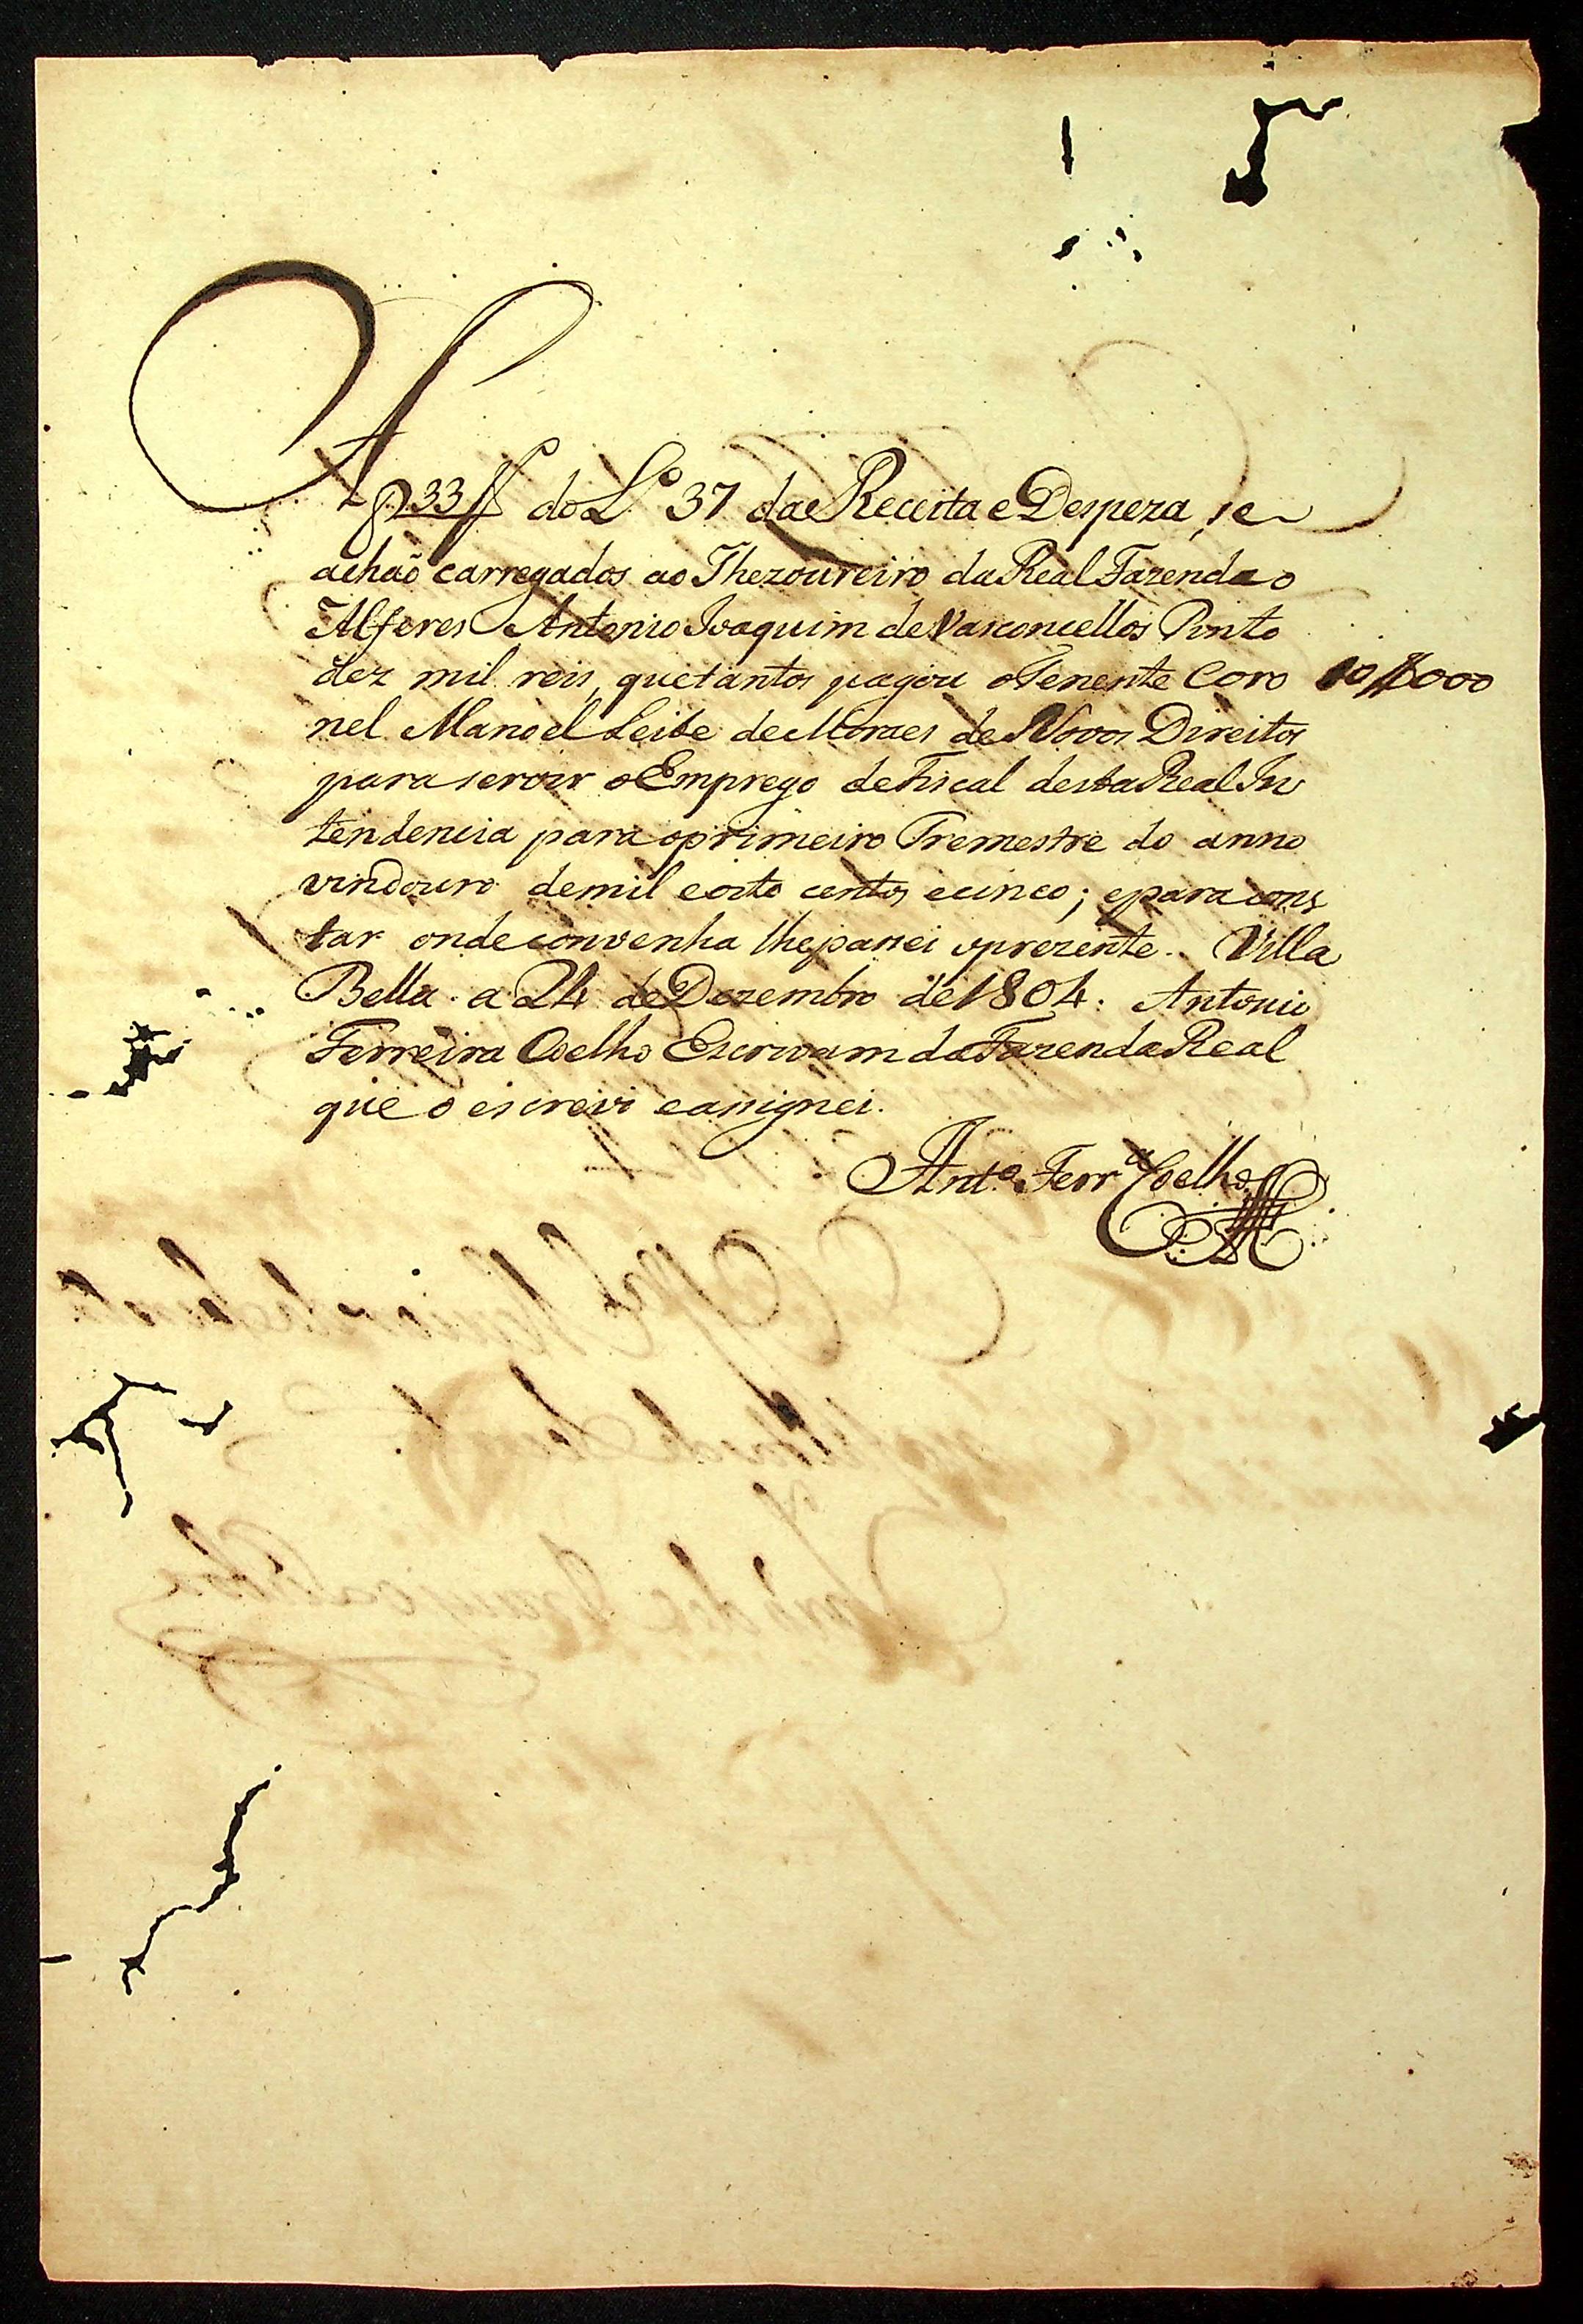 A f 33 V do L.o 37 da Receita e Despeza, se
achão carregados ao Thezoureiro da Real Fazenda o
Alferes Antonio Joaquim de Vasconcellos Pinto
dez mil reis, que tantos pagou o Tenente Coro 10$000
nel Manoel Leite de Moraes de Novos Direitos
para servir o Emprego de Fiscal desta Real In
tendencia para o primeiro Tremestre do anno
vindouro de mil e oito centos e cinco; e para cons
tar onde convenha lhe passei o prezente. Villa
Bella a 24 de Dezembro de 1804. Antonio
Ferreira Coelho Escrivam da Fazenda Real
que o escrevi e assignei.
Ant.o Ferr.a Coelho